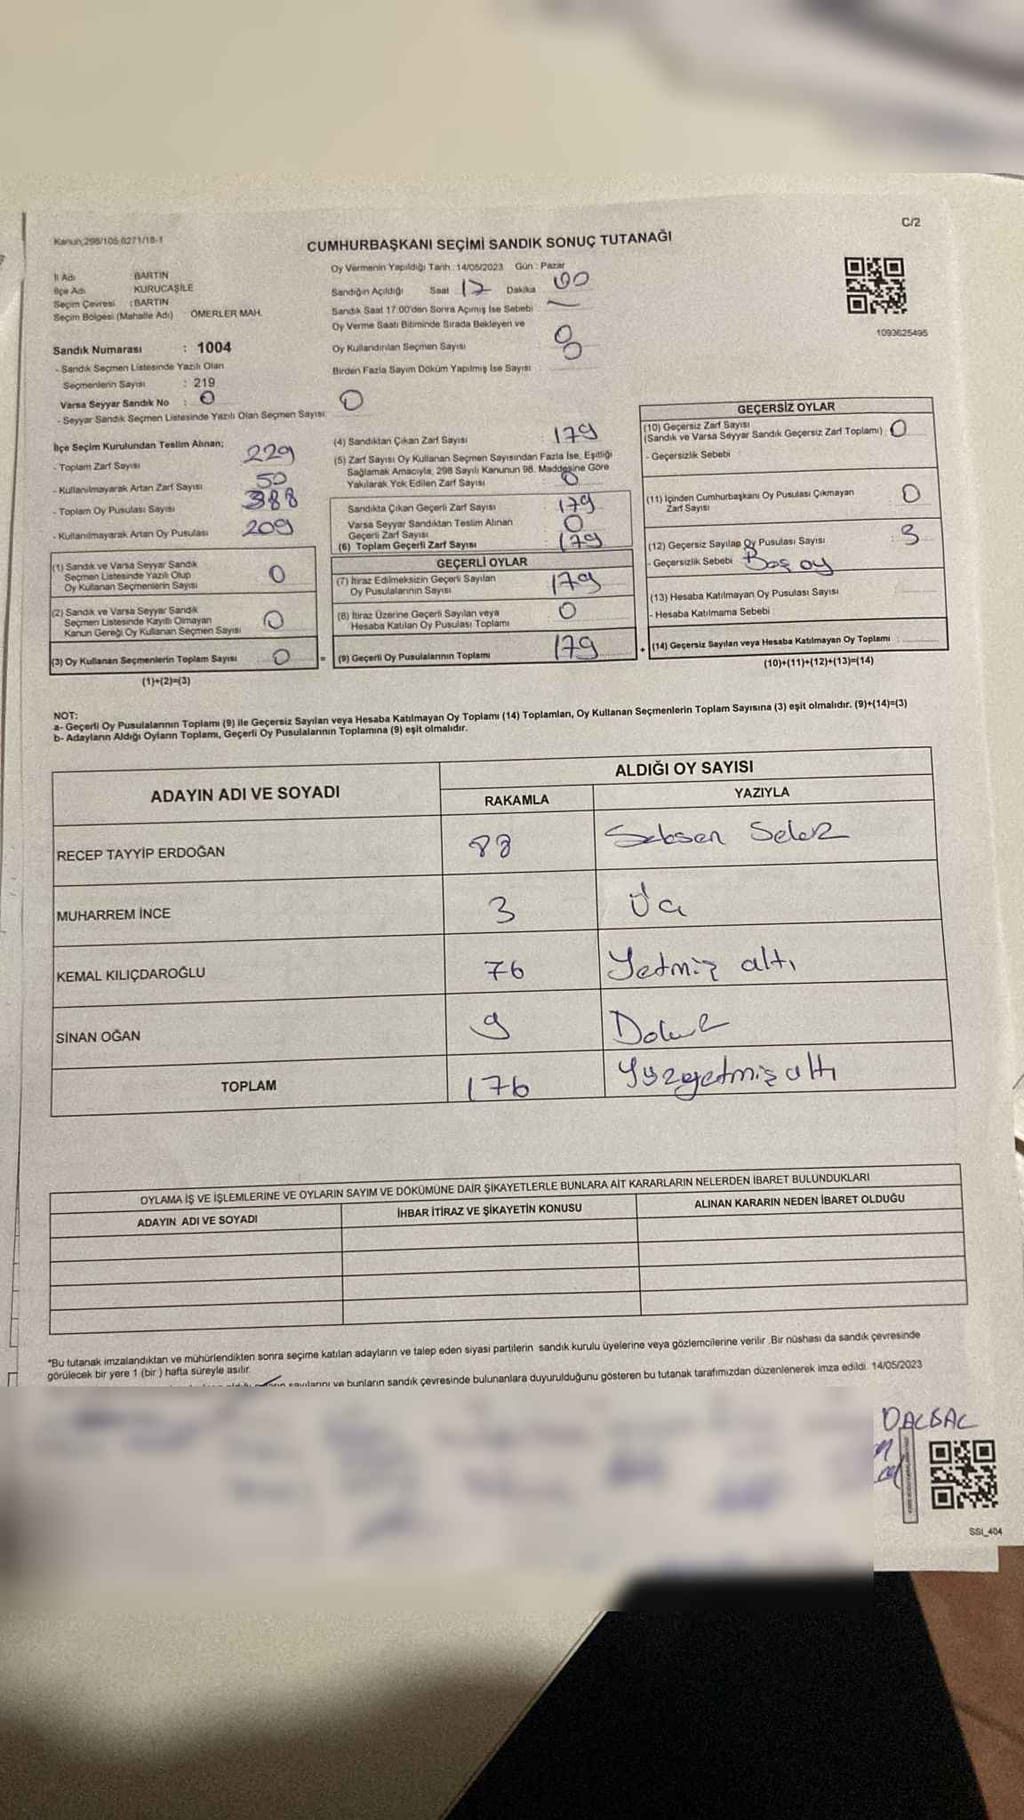 Kanun;298/105-6271/18-1
C/2
CUMHURBAŞKANI SEÇİMİ SANDIK SONUÇ TUTANAĞI
İl Adı : BARTIN
İlçe Adı : KURUCAŞİLE
Seçim Çevresi : BARTIN
Seçim Bölgesi (Mahalle Adı) : ÖMERLER MAH.
Oy Vermenin Yapıldığı Tarih : 14/05/2023 Gün : Pazar
Sandığın Açıldığı Saat 17 Dakika 00
Sandık Saat 17:00'den Sonra Açılmış İse Sebebi —
Oy Verme Saati Bitiminde Sırada Bekleyen ve
Oy Kullandırılan Seçmen Sayısı 0
Birden Fazla Sayım Döküm Yapılmış İse Sayısı 0
1093625495
Sandık Numarası : 1004
- Sandık Seçmen Listesinde Yazılı Olan
Seçmenlerin Sayısı : 219
Varsa Seyyar Sandık No : 0
- Seyyar Sandık Seçmen Listesinde Yazılı Olan Seçmen Sayısı: 0
İlçe Seçim Kurulundan Teslim Alınan;
- Toplam Zarf Sayısı 229
- Kullanılmayarak Artan Zarf Sayısı 50
- Toplam Oy Pusulası Sayısı 388
- Kullanılmayarak Artan Oy Pusulası 209
(1) Sandık ve Varsa Seyyar Sandık
Seçmen Listesinde Yazılı Olup
Oy Kullanan Seçmenlerin Sayısı 0
(2) Sandık ve Varsa Seyyar Sandık
Seçmen Listesinde Kayıtlı Olmayan
Kanun Gereği Oy Kullanan Seçmen Sayısı 0
(3) Oy Kullanan Seçmenlerin Toplam Sayısı 0 =
(1)+(2)=(3)
(4) Sandıktan Çıkan Zarf Sayısı : 179
(5) Zarf Sayısı Oy Kullanan Seçmen Sayısından Fazla İse, Eşitliği
Sağlamak Amacıyla, 298 Sayılı Kanunun 98. Maddesine Göre
Yakılarak Yok Edilen Zarf Sayısı 0
Sandıkta Çıkan Geçerli Zarf Sayısı : 179
Varsa Seyyar Sandıktan Teslim Alınan
Geçerli Zarf Sayısı : 0
(6) Toplam Geçerli Zarf Sayısı : 179
GEÇERLİ OYLAR
(7) İtiraz Edilmeksizin Geçerli Sayılan
Oy Pusulalarının Sayısı 179
(8) İtiraz Üzerine Geçerli Sayılan veya
Hesaba Katılan Oy Pusulası Toplamı 0
(9) Geçerli Oy Pusulalarının Toplamı 179 +
GEÇERSİZ OYLAR
(10) Geçersiz Zarf Sayısı
(Sandık ve Varsa Seyyar Sandık Geçersiz Zarf Toplamı) : 0
- Geçersizlik Sebebi
(11) İçinden Cumhurbaşkanı Oy Pusulası Çıkmayan
Zarf Sayısı 0
(12) Geçersiz Sayılan Oy Pusulası Sayısı : 3
- Geçersizlik Sebebi Boş oy
(13) Hesaba Katılmayan Oy Pusulası Sayısı
- Hesaba Katılmama Sebebi
(14) Geçersiz Sayılan veya Hesaba Katılmayan Oy Toplamı :
(10)+(11)+(12)+(13)=(14)
NOT:
a- Geçerli Oy Pusulalarının Toplamı (9) ile Geçersiz Sayılan veya Hesaba Katılmayan Oy Toplamı (14) Toplamları, Oy Kullanan Seçmenlerin Toplam Sayısına (3) eşit olmalıdır. (9)+(14)=(3)
b- Adayların Aldığı Oyların Toplamı, Geçerli Oy Pusulalarının Toplamına (9) eşit olmalıdır.
ADAYIN ADI VE SOYADI
ALDIĞI OY SAYISI
RAKAMLA YAZIYLA
RECEP TAYYİP ERDOĞAN 88 Seksen Sekiz
MUHARREM İNCE 3 Üç
KEMAL KILIÇDAROĞLU 76 Yetmiş altı
SİNAN OĞAN 9 Dokuz
TOPLAM 176 Yüzyetmiş altı
OYLAMA İŞ VE İŞLEMLERİNE VE OYLARIN SAYIM VE DÖKÜMÜNE DAİR ŞİKAYETLERLE BUNLARA AİT KARARLARIN NELERDEN İBARET BULUNDUKLARI
ADAYIN ADI VE SOYADI İHBAR İTİRAZ VE ŞİKAYETİN KONUSU ALINAN KARARIN NEDEN İBARET OLDUĞU
*Bu tutanak imzalandıktan ve mühürlendikten sonra seçime katılan adayların ve talep eden siyasi partilerin sandık kurulu üyelerine veya gözlemcilerine verilir. Bir nüshası da sandık çevresinde
görülecek bir yere 1 (bir ) hafta süreyle asılır.
sayılarını ve bunların sandık çevresinde bulunanlara duyurulduğunu gösteren bu tutanak tarafımızdan düzenlenerek imza edildi. 14/05/2023
DALBAL
SSI_404